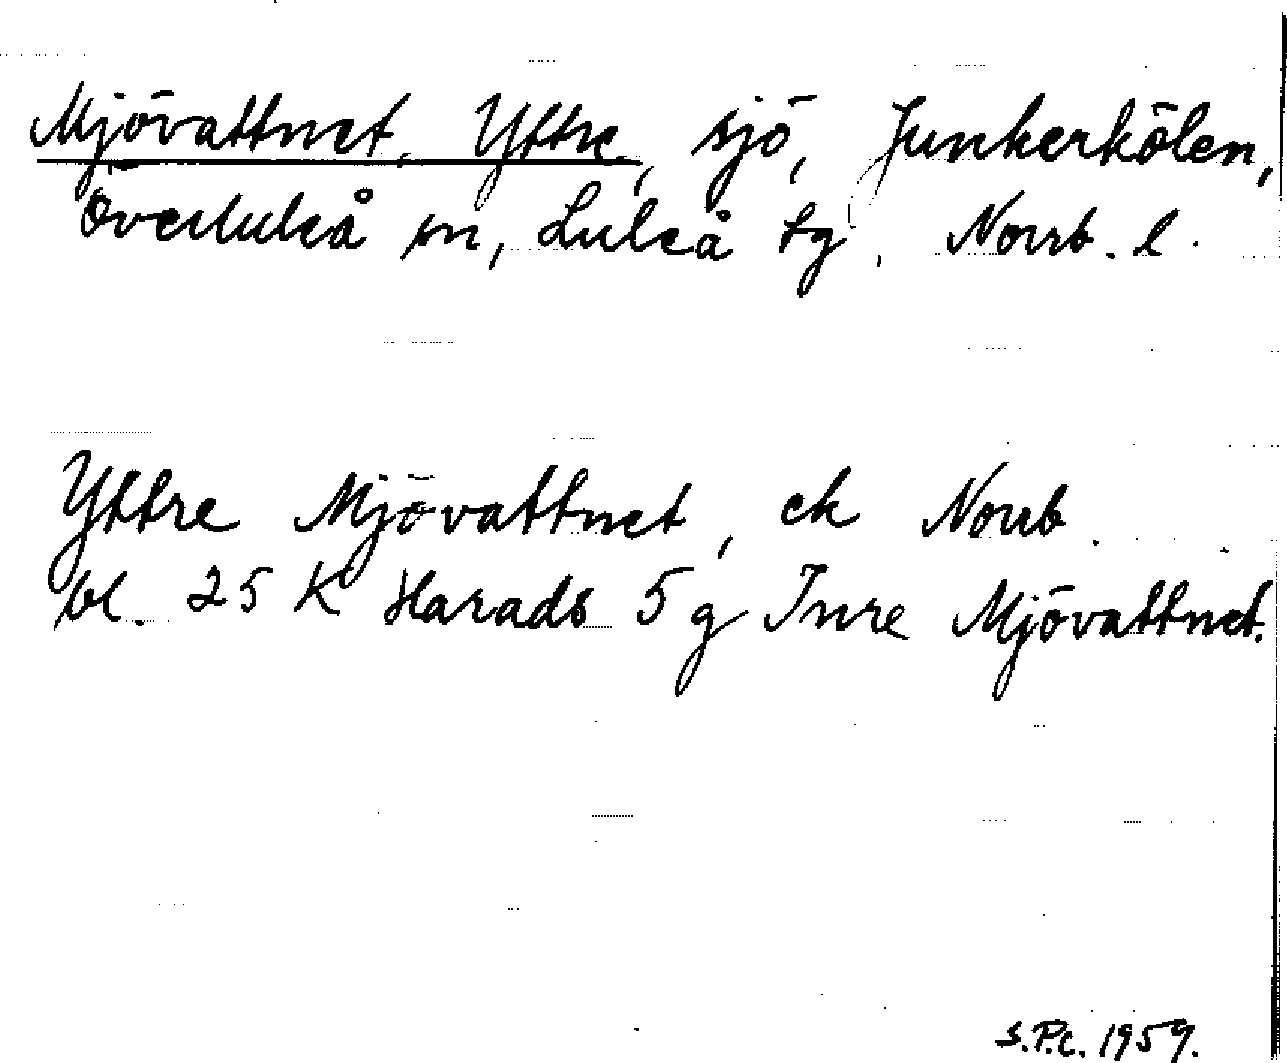 Mjövattnet, Yttre, sjö, Junkerkölen,
Överluleå sn, Luleå tg, Norrb. l.
Yttre Mjövattnet, ek Norrb.
bl. 25 K Harads 5 g Inre Mjövattnet.
S.P.C. 1959.